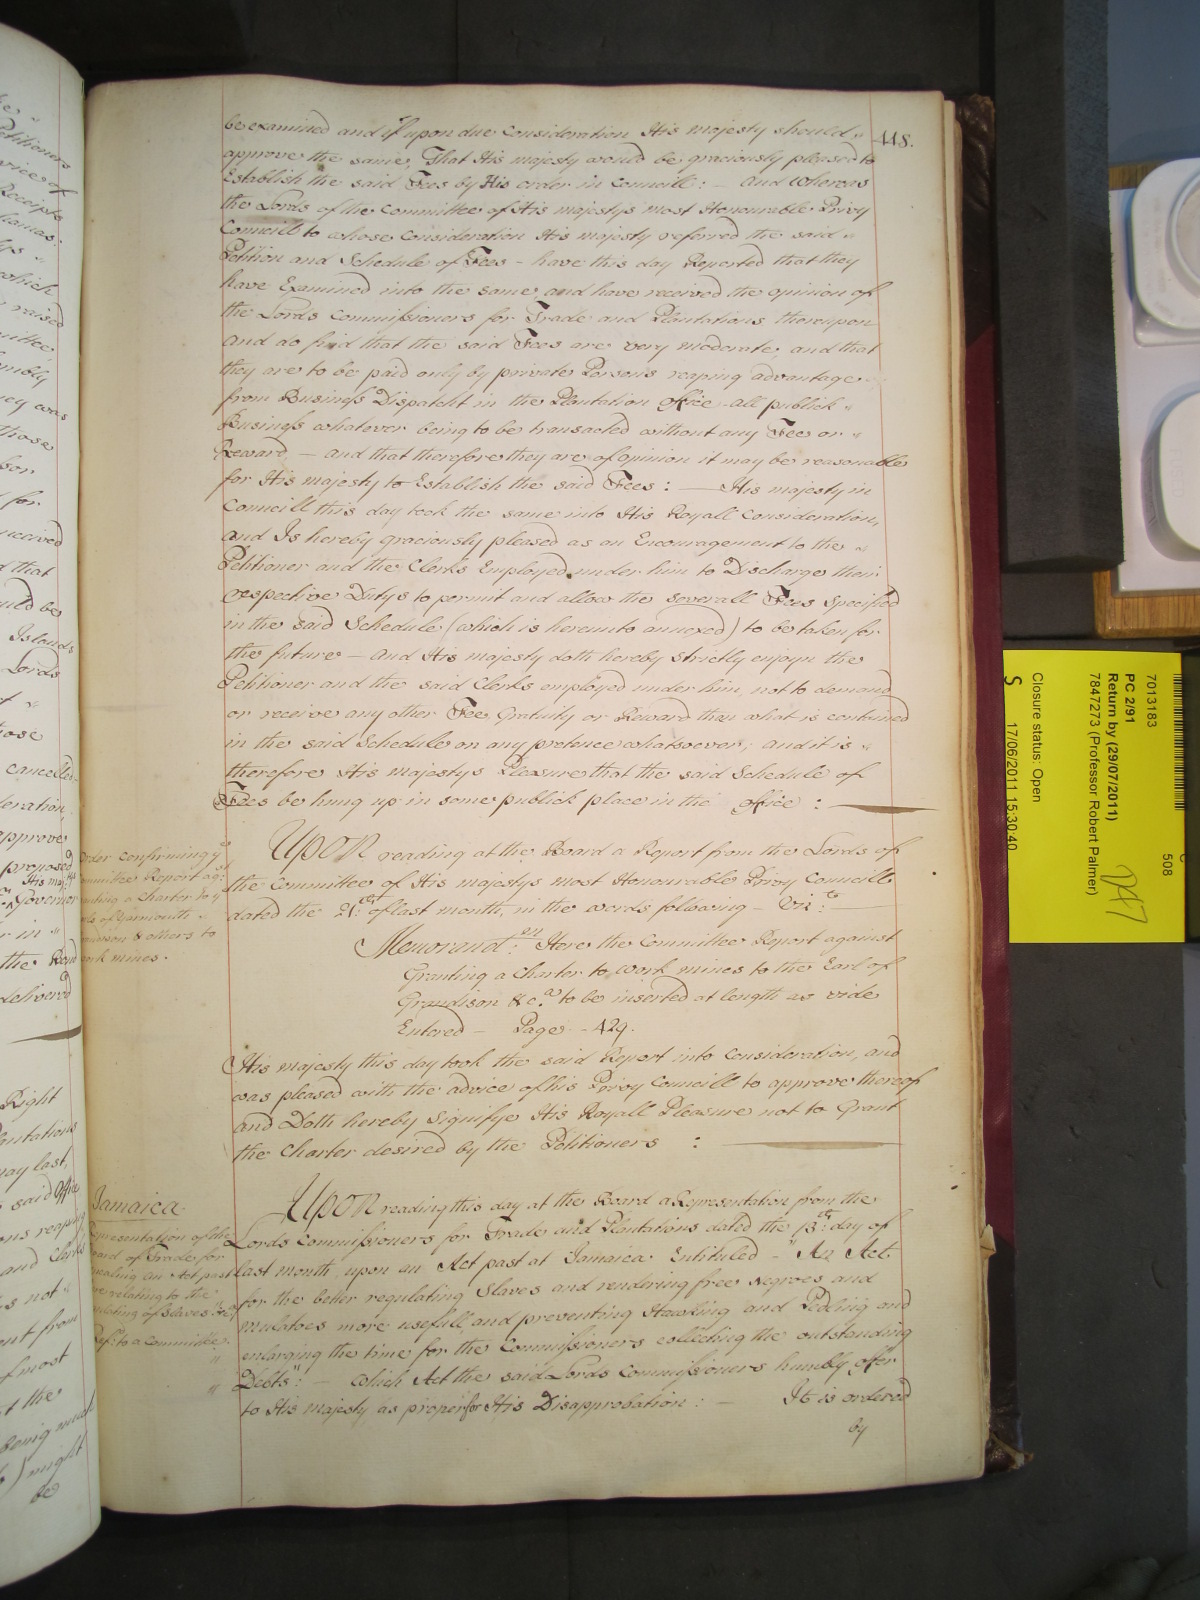 448.
be examined and if upon due Consideration His majesty should "
approve the same, That His majesty would be graciously pleased to
Establish the said Fees by His order in Councill : — And Whereas
the Lords of the Committee of His majestys most Honourable Privy
Councill to whose Consideration His majesty referred the said "
Petition and Schedule of Fees – have this day Reported that they
have Examined into the same, and have received the opinion of
the Lords Commissioners for Trade and Plantations thereupon
and do find that the said Fees are very moderate, and that
they are to be paid only by private Persons reaping advantage
from Business Dispatcht in the Plantation office all publick "
Business whatever being to be transacted without any Fee or "
Reward, — and that therefore they are of opinion it may be reasonable
for His majesty to Establish the said Fees : — His majesty in
Councill this day took the same into His Royall Consideration,
and Is hereby graciously pleased as an Encouragement to the "
Petitioner and the Clerks Employed under him to Discharge their
respective Dutys to permit and allow the severall Fees specified
in the said Schedule (which is hereunto annexed) to be taken for
the future — And His majesty doth hereby strictly enjoyn the
Petitioner and the said Clerks employed under him, not to demand
or receive any other Fee Gratuity or Reward than what is contained
in the said Schedule on any pretence whatsoever; and it is "
therefore His majestys Pleasure that the said Schedule of
Fees be hung up in some publick place in the office :
Order confirming ye
Committee Report agt
granting a Charter to ye
Earle of Yarmouth
Grandison & others to
work mines.
UPON reading at the Board a Report from the Lords of
the Committee of His majestys most Honourable Privy Councill
dated the 21st of last month, in the words following – Vizt
Memorandm: Here the Committee Report against
Granting a Charter to work mines to the Earl of
Grandison &ca to be inserted at length as vide
Entered – Page – 429.
His majesty this day took the said Report into Consideration, and
was pleased with the advice of his Privy Councill to approve thereof
and Doth hereby Signifye His Royall Pleasure not to Grant
the Charter desired by the Petitioners :
Jamaica.
Representation of the
Board of Trade for
repealing an Act past
there relating to the
regulating of Slaves &ca
Refd: to a Committee.
UPON reading this day at the Board a Representation from the
Lords Commissioners for Trade and Plantations dated the 13th: day of
last month, upon an Act past at Jamaica Entituled – "An Act
for the better regulating Slaves and rendering free negroes and
mulatoes more usefull, and preventing Hawking and Pedling and
enlarging the time for the Commissioners collecting the outstanding
Debts": — which Act the said Lords Commissioners humbly offer
to His majesty as proper for His Disapprobation : — It is ordered
by
7013183
PC 2/91
Return by (29/07/2011)
7847273 (Professor Robert Palmer)
Closure status: Open
S
17/06/2011 15:30:40
508